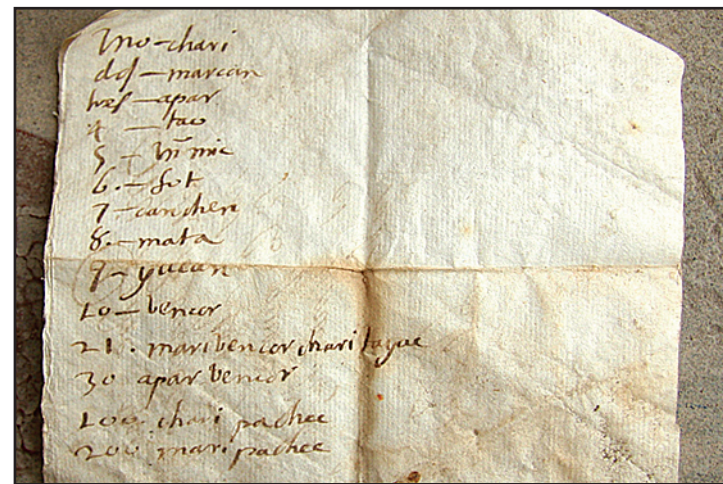 uno-chari
dos-marian
tres-apar
4-tao
5-himic
6.-sut
7-canchen
8.-mata
9-yucan
10-bencor
21. maribencor chari tayue
30 apar bencor
100. chari pachac
200 mari pachac